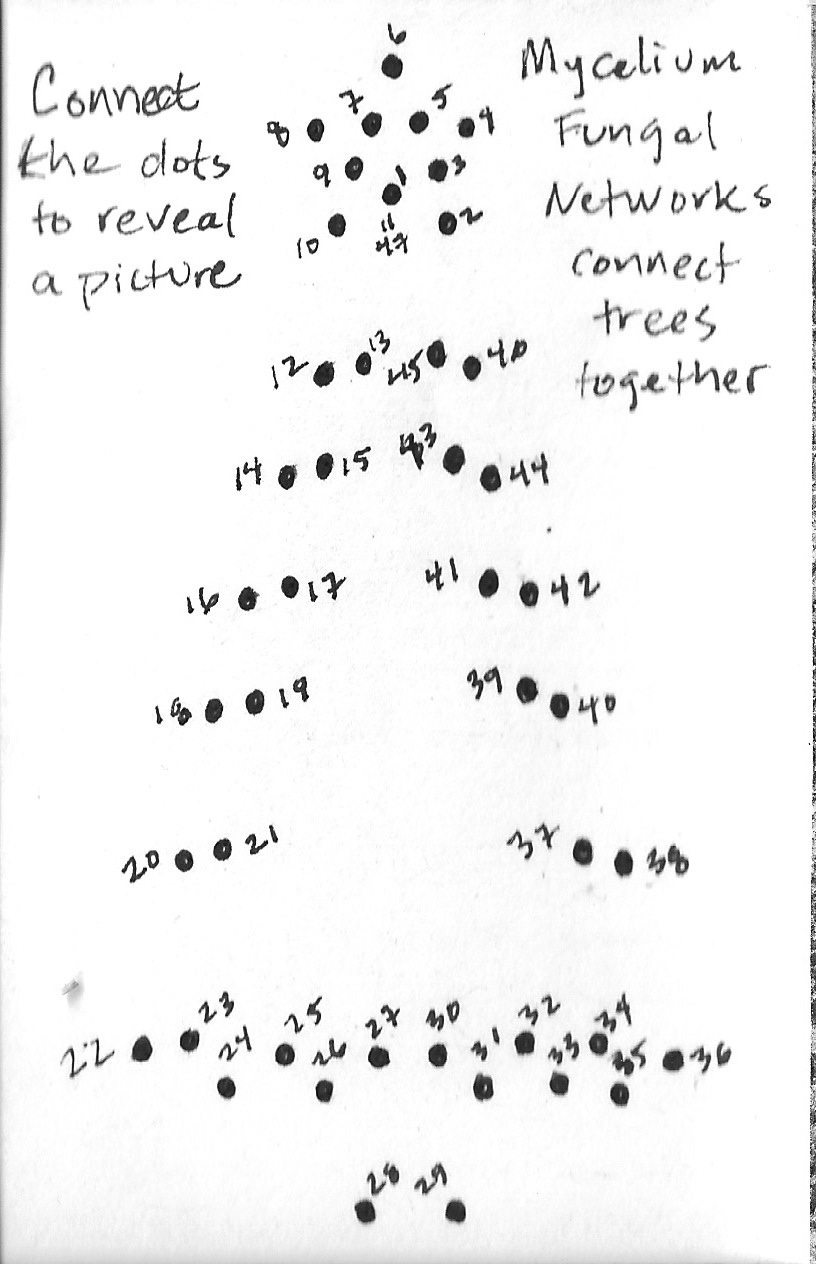 Connect
the dots
to reveal
a picture
Mycelium
Fungal
Networks
connect
trees
together
6
7 5
8 4
9 1 3
10 11 2
47
12 13 45 40
14 15 43 44
16 17 41 42
18 19 39 40
20 21 37 38
22 23 24 25 26 27 30 31 32 33 34 35 36
28 29